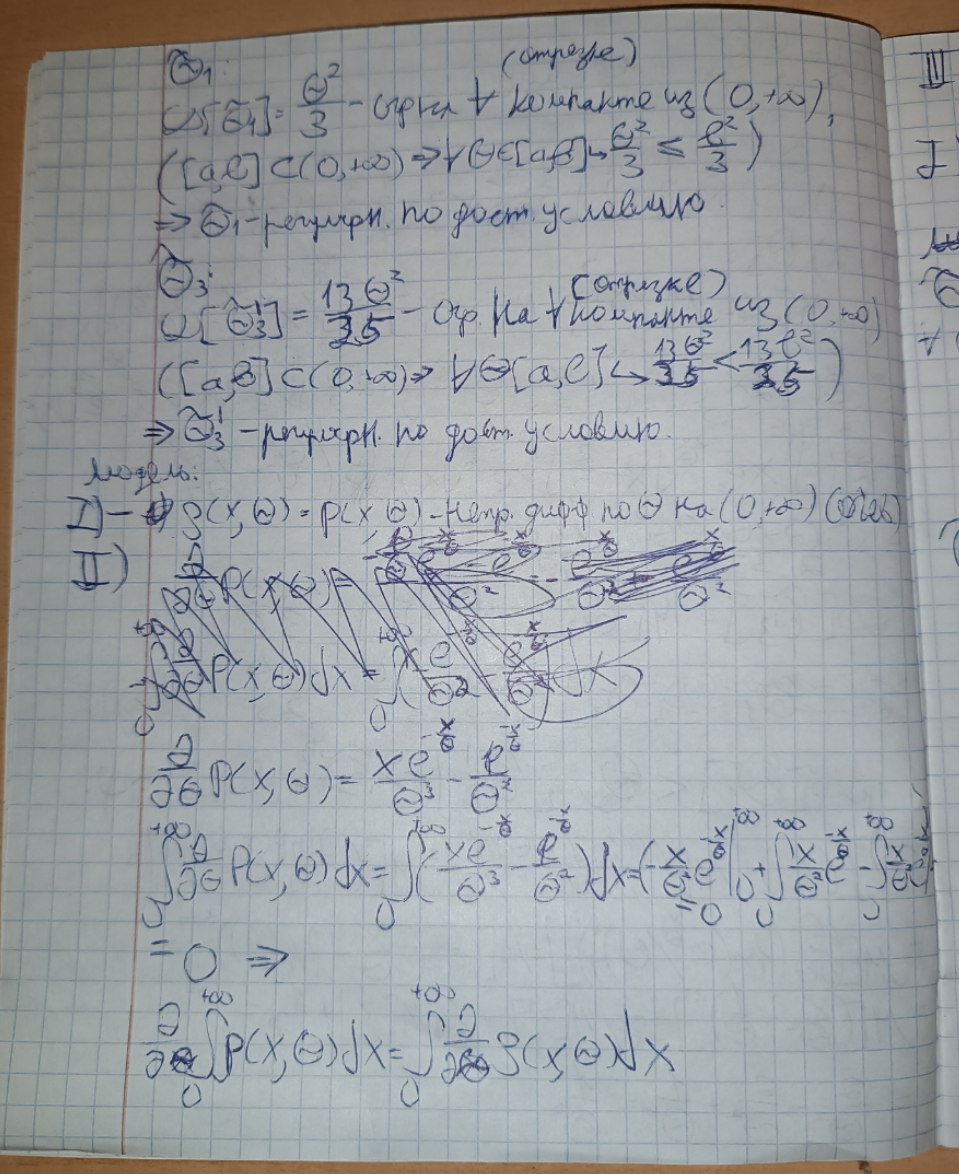 Θ̃₁:
(отрезке)
D[Θ̃₁] = Θ²/3 - огр на ∀ компакте из (0,+∞),
([a,b] ⊂ (0,+∞) ⇒ ∀Θ∈[a,b] ↪ Θ²/3 ≤ b²/3)
⇒ Θ̃₁ - регулярн. по дост. условию.
Θ̃₃:
(отрезке)
D[Θ̃₃'] = 13Θ²/35 - огр. на ∀ компакте из (0,+∞)
([a,b] ⊂ (0,+∞) ⇒ ∀Θ[a,b] ↪ 13Θ²/35 < 13b²/35)
⇒ Θ̃₃' - регулярн. по дост. условию.
Модель:
I) - ρ(x,Θ) = p(x,Θ) - непр. дифф по Θ на (0,+∞)
II)
∂/∂Θ p(x,Θ) = xe^(-x/Θ)/Θ³ - e^(-x/Θ)/Θ²
∫₀^(+∞) ∂/∂Θ p(x,Θ)dx = ∫₀^(+∞) (xe^(-x/Θ)/Θ³ - e^(-x/Θ)/Θ²)dx = (-x/Θ² e^(-x/Θ) |₀^(+∞) = 0 + ∫₀^(+∞)
= 0 ⇒
∂/∂Θ ∫₀^(+∞) p(x,Θ)dx = ∫₀^(+∞) ∂/∂Θ ρ(x,Θ)dx
III
I